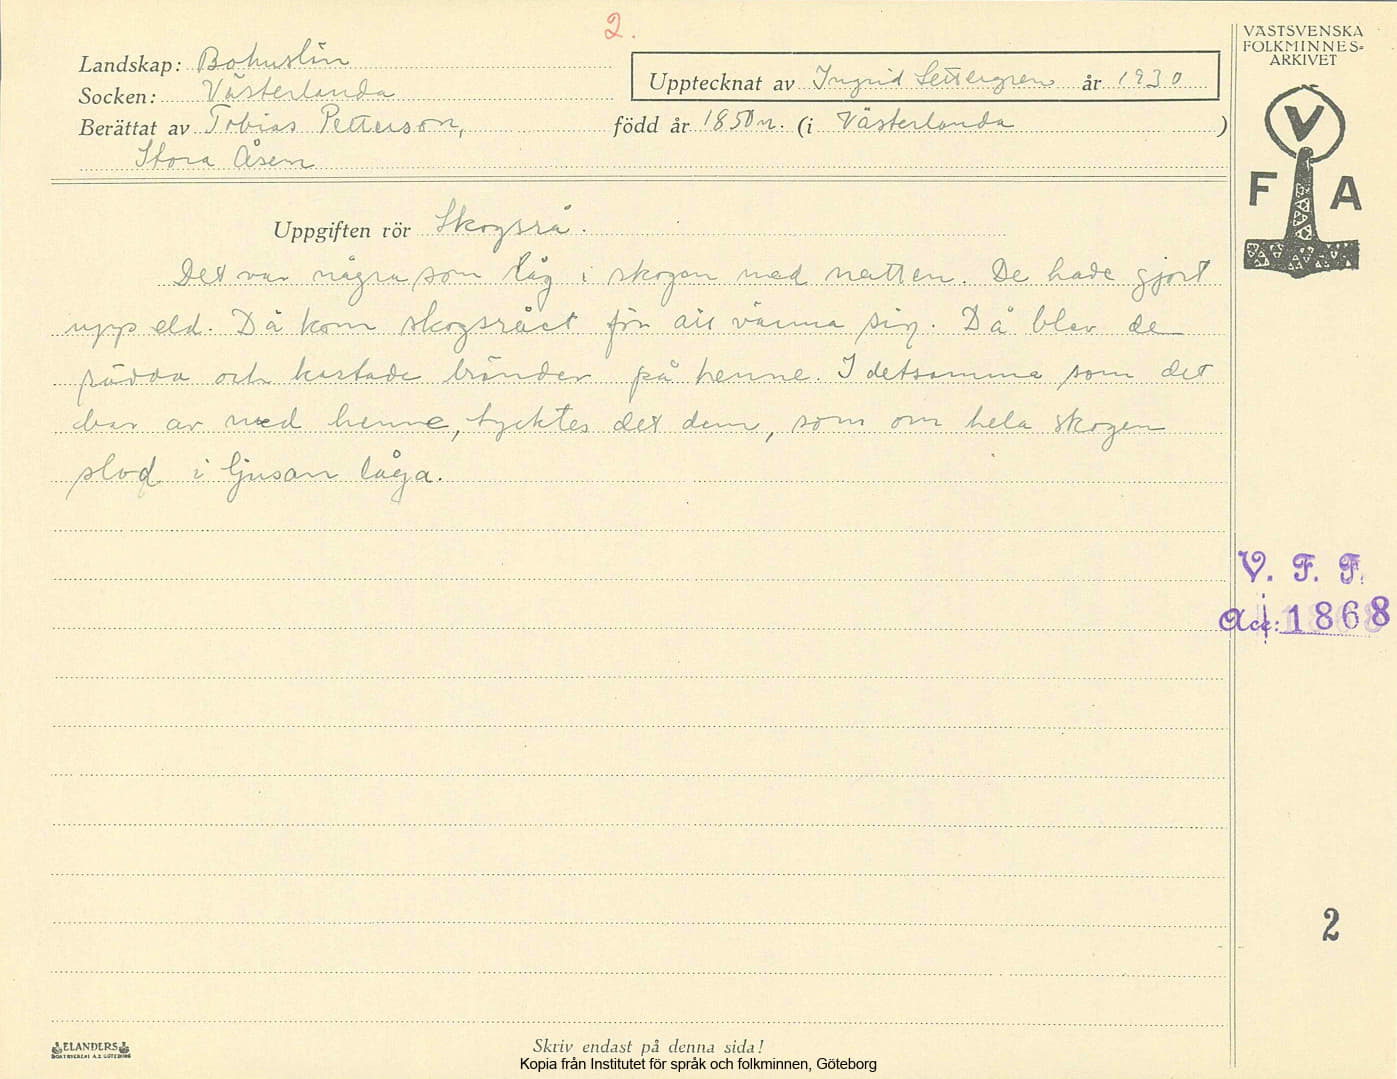 2.
Landskap: Bohuslän
Socken: Västerlanda
Berättat av Tobias Petterson,
Stora Åsen
Upptecknat av Ingrid Settergren år 1930
född år 1850 (i Västerlanda)
Uppgiften rör Skogsrå.
Det var några som låg i skogen med natten. De hade gjort
upp eld. Då kom skogsrået för att värma sig. Då blev de
rädda och kastade bränder på henne. I detsamma som det
bar av med henne, tycktes det dem, som om hela skogen
stod i ljusan låga.
VÄSTSVENSKA
FOLKMINNES-
ARKIVET
V
F A
V. F. F.
Acc: 1868
2
ELANDERS
BOKTRYCKERI A.B. GÖTEBORG
Skriv endast på denna sida!
Kopia från Institutet för språk och folkminnen, Göteborg